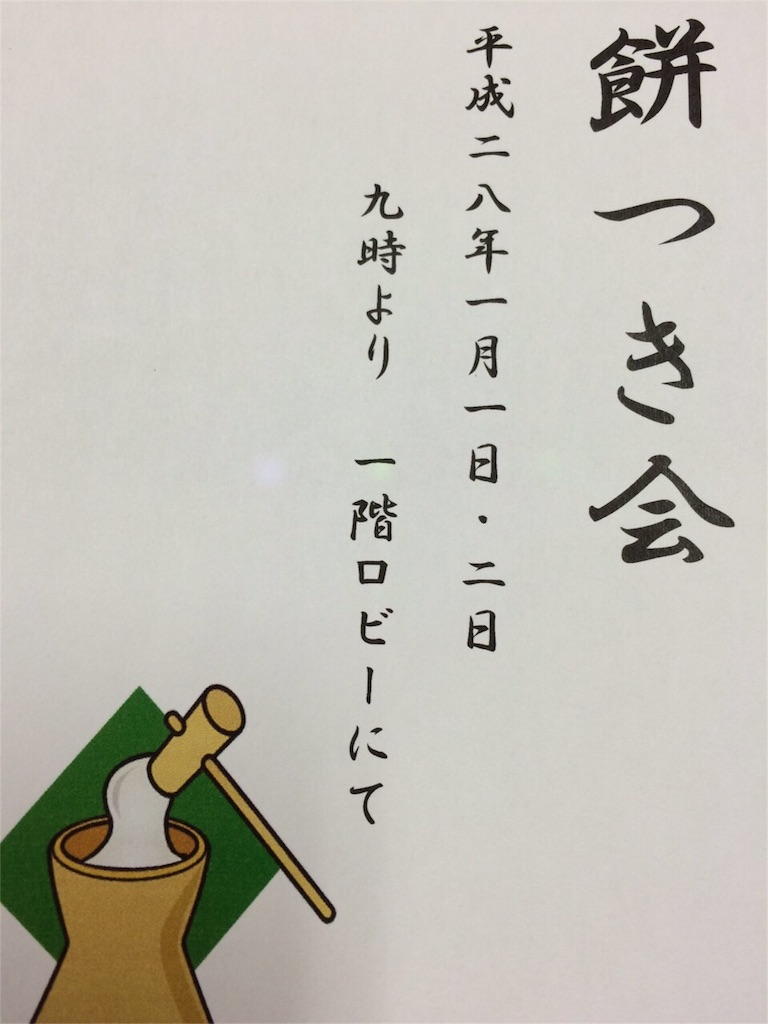 餅つき会
平成二八年一月一日・二日
九時より 一階ロビーにて